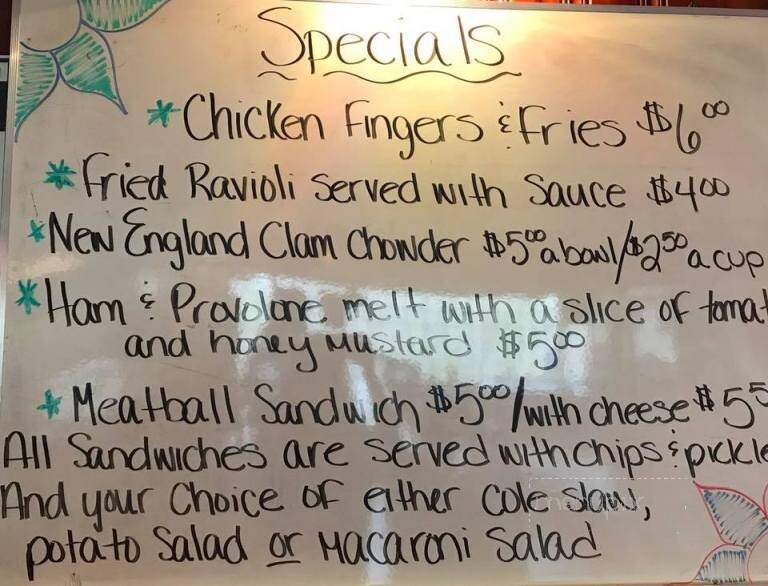 Specials
* Chicken Fingers & Fries $6.00
* Fried Ravioli Served with Sauce $4.00
* New England Clam Chowder $5.00 a bowl/$2.50 a cup
* Ham & Provolone melt with a slice of tomat
and honey mustard $5.00
* Meatball Sandwich $5.00/with cheese $5.5
All Sandwiches are served with chips & pickle
And your Choice of either Cole slaw,
potato Salad or Macaroni Salad